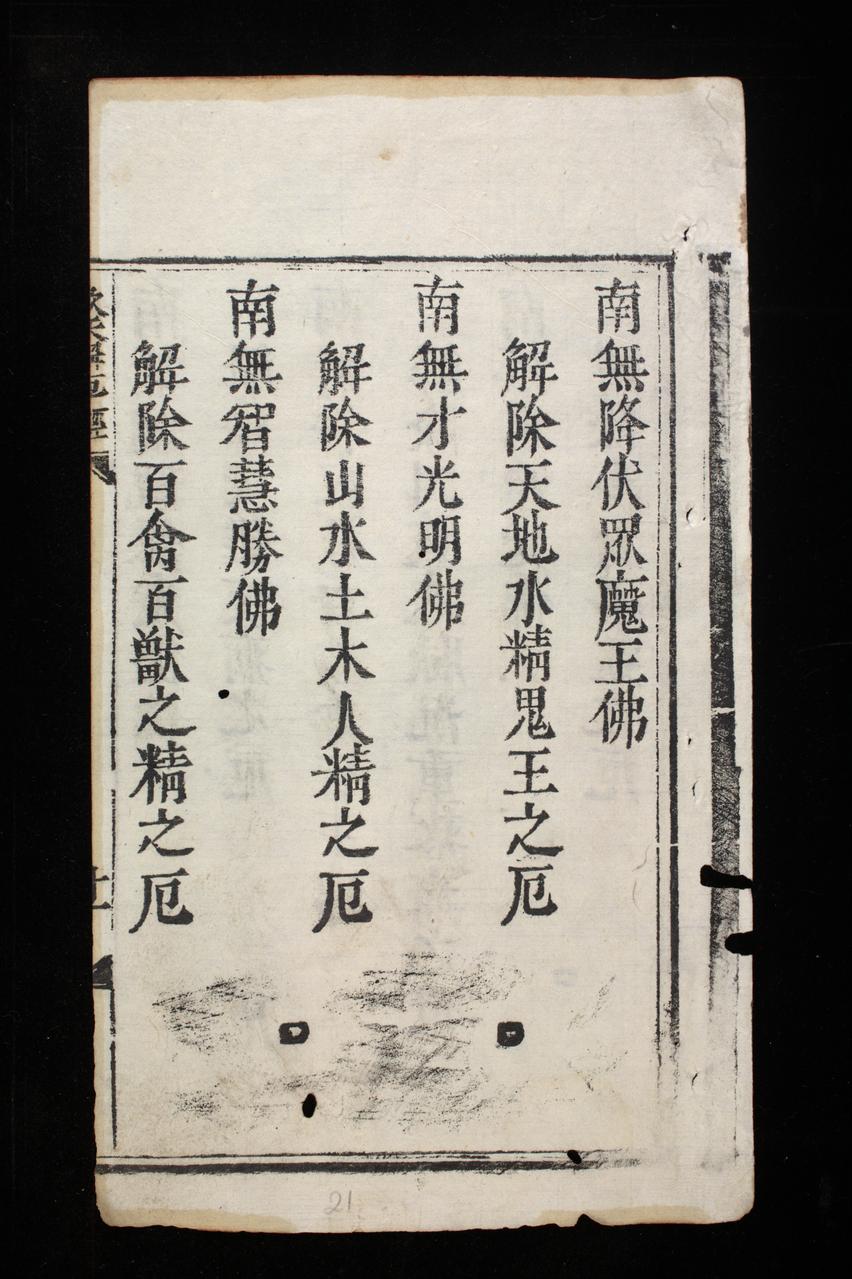 南無降伏眾魔王佛
解除天地水精鬼王之厄
南無才光明佛
解除山水土木人精之厄
南無智慧勝佛
解除百禽百獸之精之厄
解厄經
21